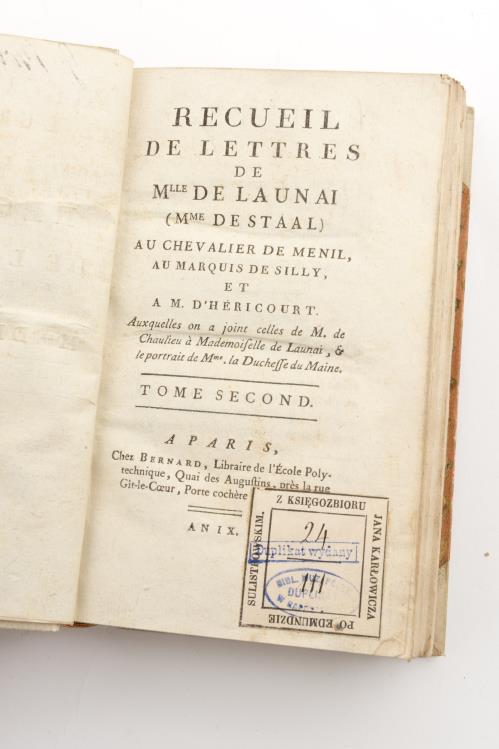 RECUEIL
DE LETTRES
DE
MLLE DE LAUNAI
(MME DE STAAL)
AU CHEVALIER DE MENIL,
AU MARQUIS DE SILLY,
ET
A M. D'HÉRICOURT.
Auxquelles on a joint celles de M. de
Chaulieu à Mademoiselle de Launai, &
le portrait de Mme. la Duchesse du Maine.
TOME SECOND.
A PARIS,
Chez BERNARD, Libraire de l'École Poly-
technique, Quai des Augustins, près la rue
Git-le-Cœur, Porte cochère
AN IX.
Z KSIĘGOZBIORU
JANA KARŁOWICZA
PO EDMUNDZIE
SULISTROWSKIM.
24
Duplikat wydany
III
BIBL.
DUPL